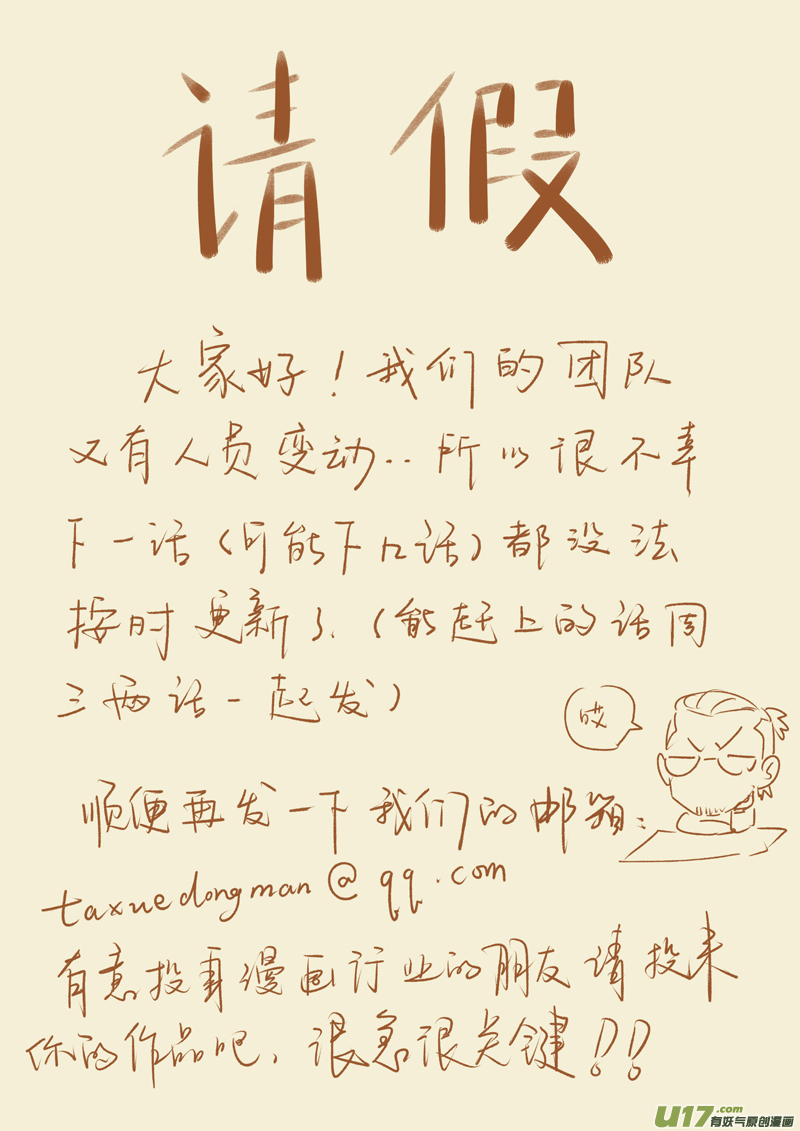 请假
大家好！我们的团队
又有人员变动..所以很不幸
下一话（可能下几话）都没法
按时更新了.（能赶上的话周
三两话一起发）
哎
顺便再发一下我们的邮箱:
taxuedongman@qq.com
有意投身漫画行业的朋友请投来
你的作品吧，很急很关键！！
U17.com
有妖气原创漫画